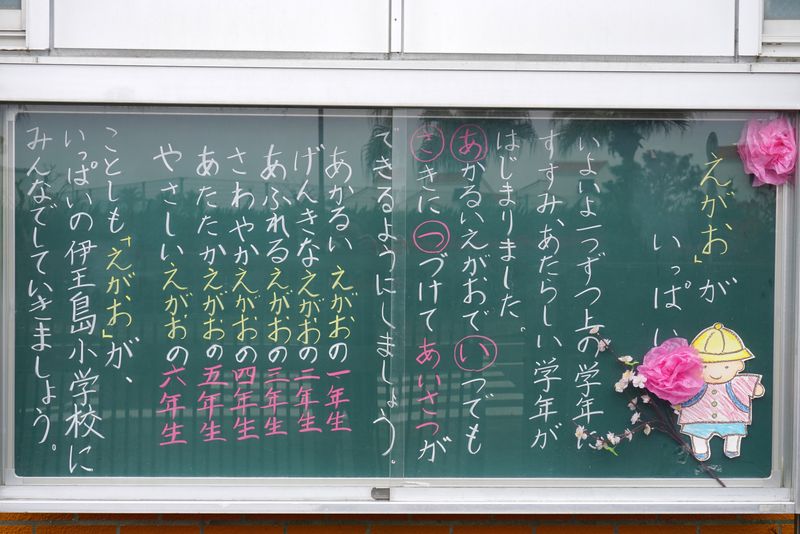 えがお」が
いっぱい
いよいよ一つずつ上の学年に
すすみ、あたらしい学年が
はじまりました。
あかるいえがおでいつでも
さきにつづけてあいさつが
できるようにしましょう。
あかるいえがおの一年生
げんきなえがおの二年生
あふれるえがおの三年生
さわやかえがおの四年生
あたたかえがおの五年生
やさしいえがおの六年生
ことしも「えがお」が、
いっぱいの伊王島小学校に
みんなでしていきましょう。